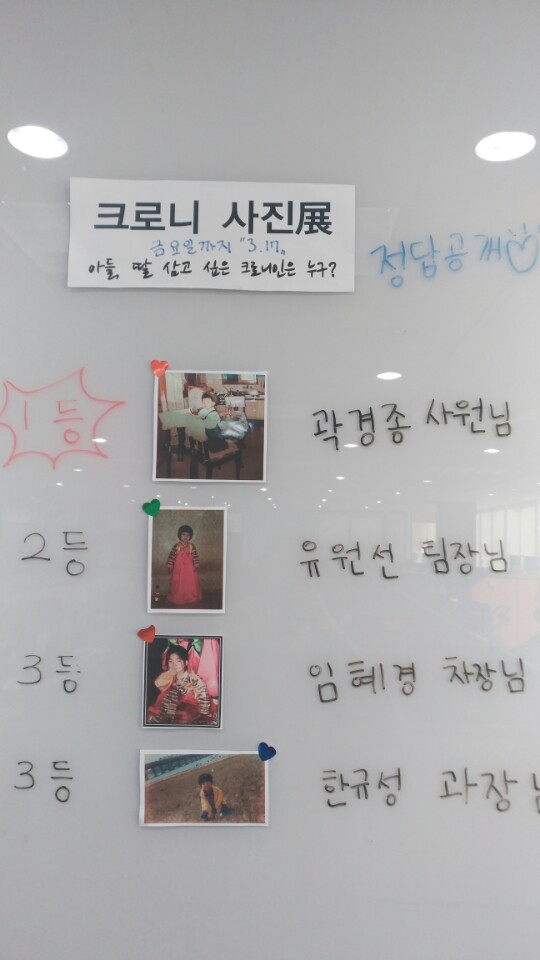 크로니 사진展
금요일까지 "3.17"
아들, 딸 삼고 싶은 크로니인은 누구?
정답공개
1등
곽경종 사원님
2등
유원선 팀장님
3등
임혜경 차장님
3등
한규성 과장님